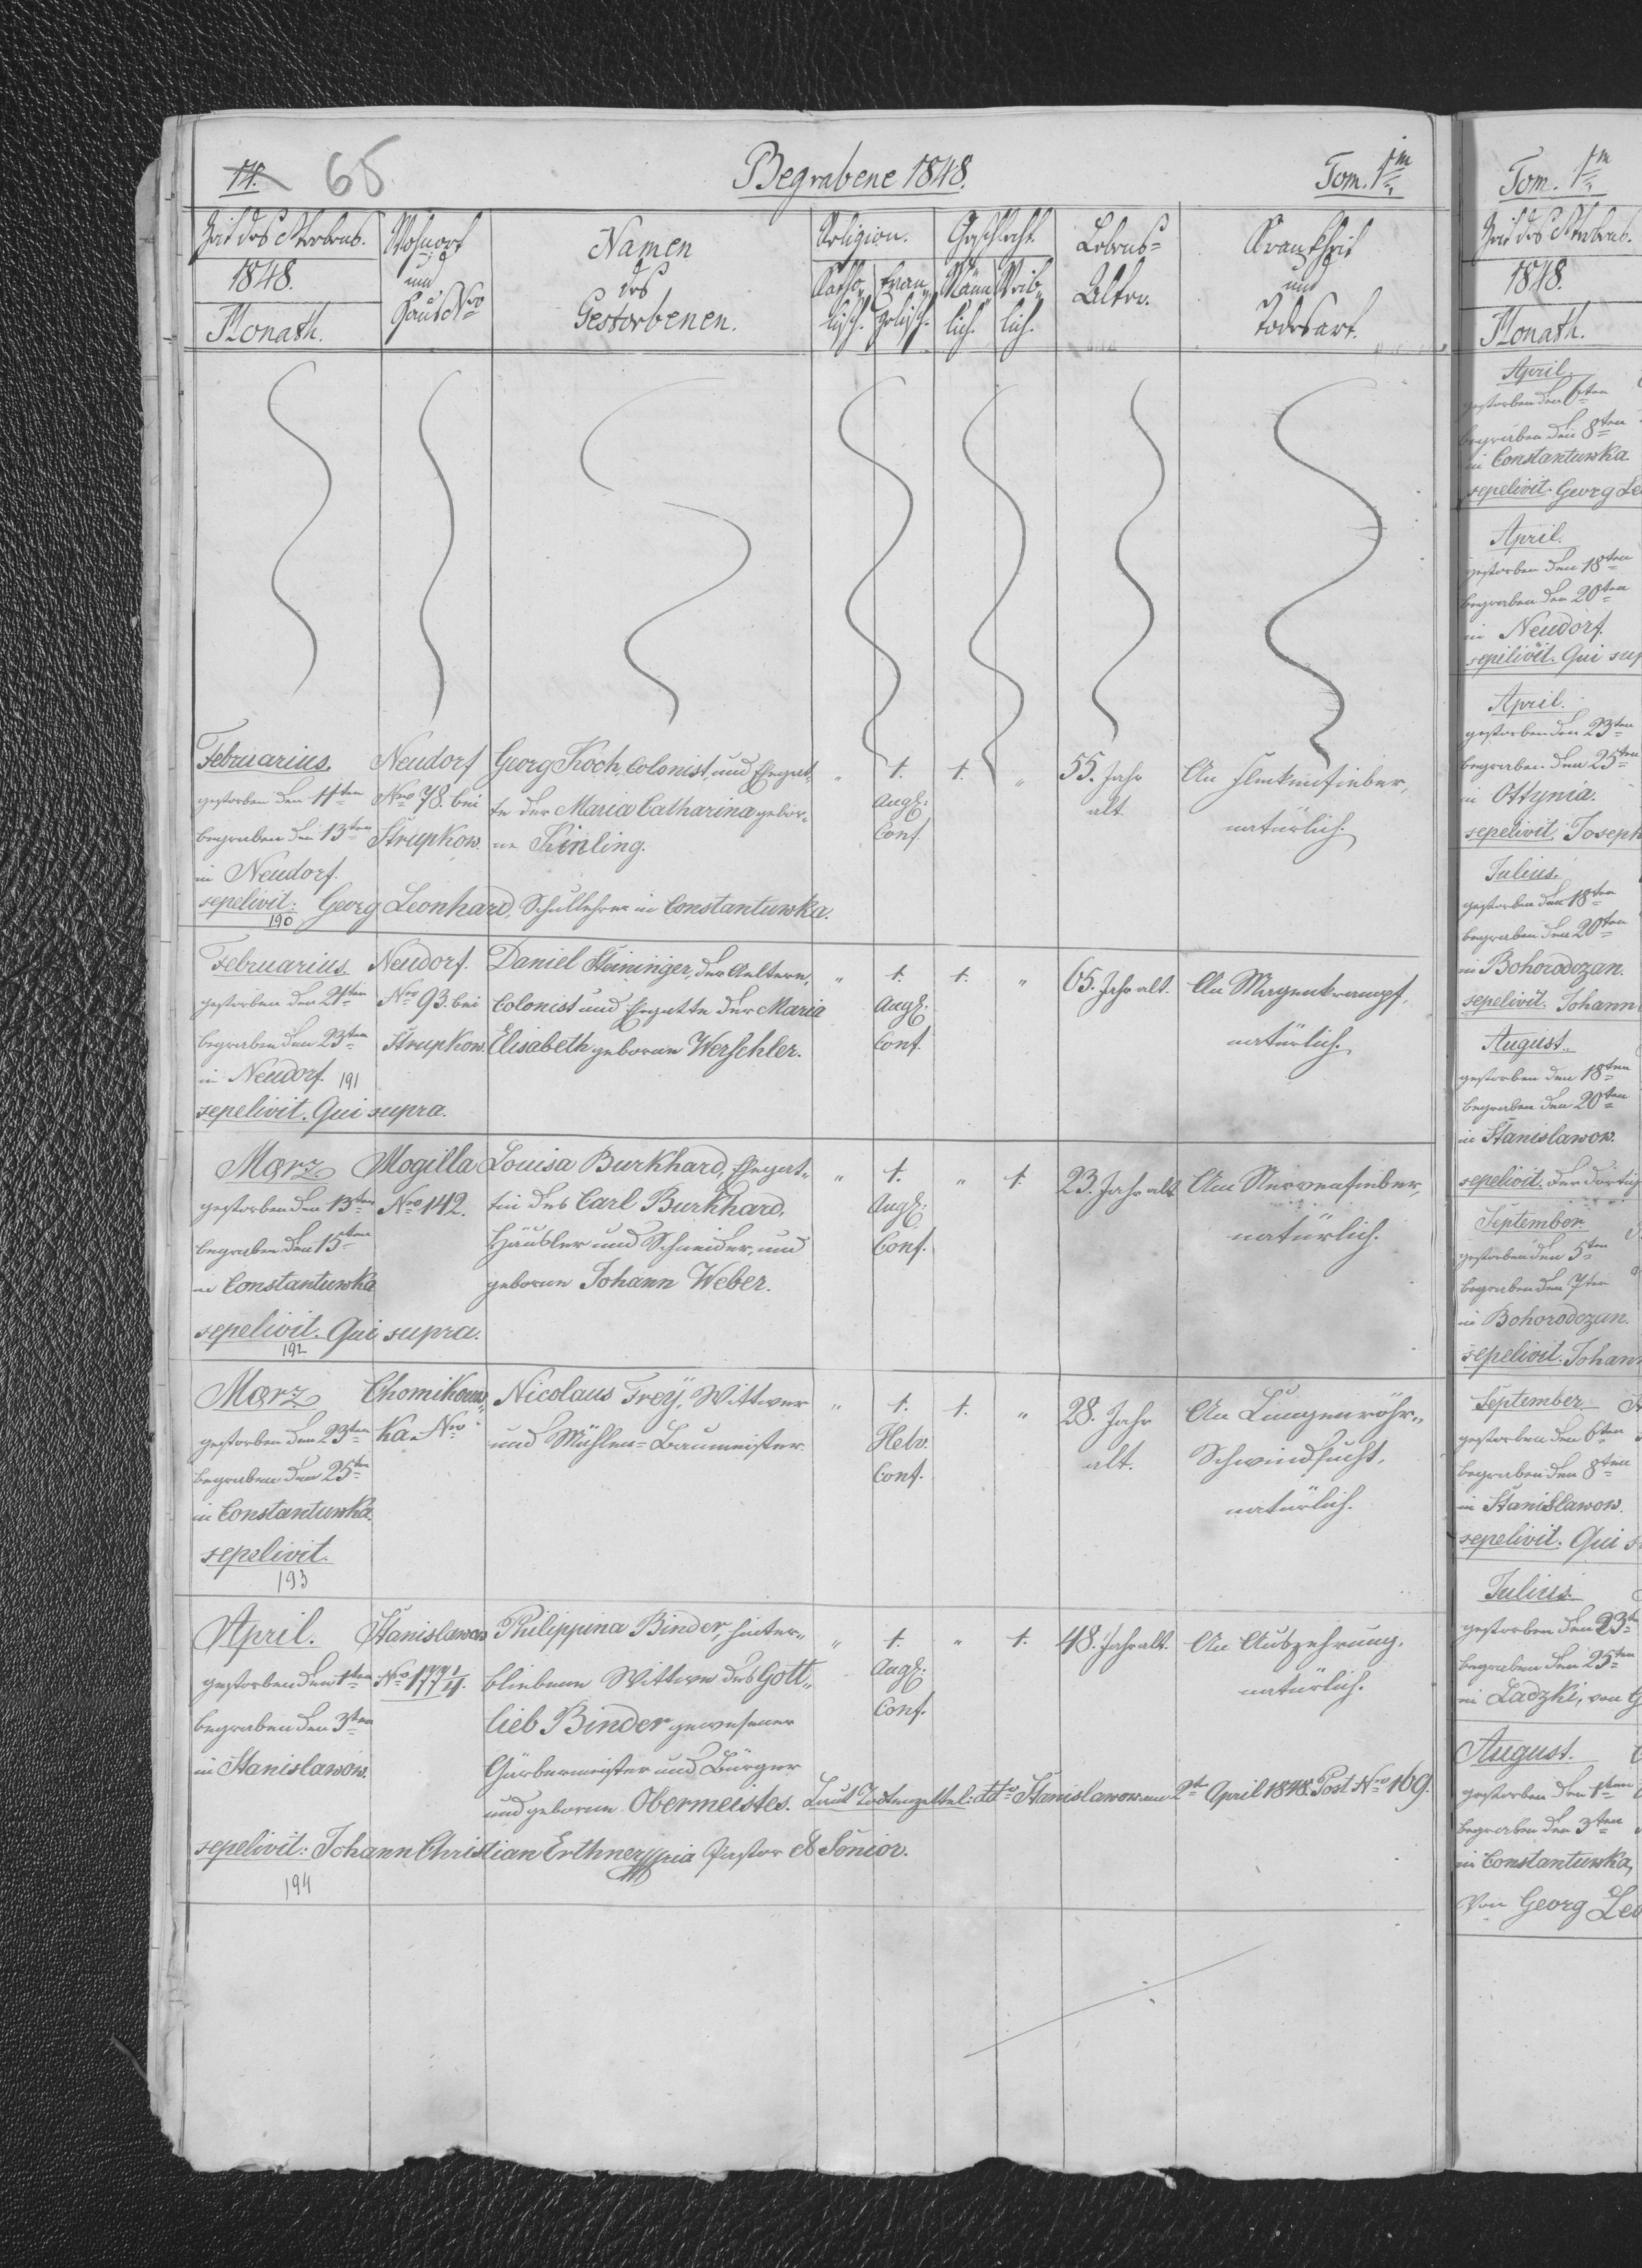 14. 65
Begrabene 1848.
Tom. 1m
Zeit des Sterbens.
1848.
Monath.
Wohnort
und
Haus Nro
Namen
des
Gestorbenen.
Religion.
Katho„
lisch.
Evan„
gelisch.
Geschlecht.
Männ„
lich.
Weib„
lich.
Lebens=
Alter.
Krankheit
und
Todesart.
Februarius.
gestorben den 11ten
begraben den 13ten
in Neudorf.
Neudorf
Nro 78. bei
Strupkow.
Georg Koch, Colonist, und Ehegat„
te der Maria Catharina gebor„
ne Kinling.
„ 1. 1. „
Augs:
Conf.
55. Jahr
alt.
An
natürlich.
sepelivit: Georg Leonhard, Schullehrer in Constantuwka.
190
Februarius.
gestorben den 21ten
begraben den 23ten
in Neudorf. 191
sepelivit. Qui supra.
Neudorf.
Nro 93. bei
Strupkow.
Daniel Steininger, der Aeltere,
Colonist und Ehegatte der Maria
Elisabeth geborne Werschler.
„ 1. 1. „
Augs:
Conf.
65. Jahr alt.
An Magenkrampf,
natürlich.
Marz
gestorben den 13ten
begraben den 15ten
in Constantuwka
sepelivit. Qui supra.
192
Mogilla
Nro 142.
Louisa Burkhard, Ehegat„
tin des Carl Burkhard,
Häusler und Schneider, und
geborne Johann Weber.
„ 1. „ 1.
Augs:
Conf.
23. Jahr alt.
Am Nervenfieber,
natürlich.
Marz
gestorben den 23ten
begraben den 25ten
in Constantuwka.
sepelivit.
193
Chomikow„
ka. Nro
Nicolaus Freÿ, Wittwer
und Mühlen=Baumeister.
„ 1. 1. „
Helv.
Conf.
28. Jahr
alt.
An Lungenröhr„
Schwindsucht,
natürlich.
April.
gestorben den 1ten
begraben den 3ten
in Stanislawow.
Stanislawow
Nro 177 1/4.
Philippina Binder, hinter„
bliebene Wittwe des Gott„
lieb Binder gewesener
Gärbermeister und Bürger
und geborne Obermeistes. Laut Todtenzettel: ddto Stanislawow am 2t April 1848. Post Nro 169.
„ 1. „ 1.
Augs:
Conf.
48. Jahr alt.
An Auszehrung,
natürlich.
sepelivit: Johann Christian Erthner mpria Pastor & Senior.
194
Tom. 1m
Zeit des Sterbens.
1848.
Monath.
April.
gestorben den 6ten
begraben den 8ten
in Constantuwka.
sepelivit. Georg Le
April.
gestorben den 18ten
begraben den 20ten
in Neudorf.
sepilivit. Qui sup
April.
gestorben den 23ten
begraben den 25ten
in Ottynia.
sepelivit. Joseph
Julius.
gestorben den 18ten
begraben den 20ten
in Bohorodozan.
sepelivit. Johann
August.
gestorben den 18ten
begraben den 20ten
in Stanislawow.
sepelivit. der dortig
September.
gestorben den 5ten
begraben den 7ten
in Bohorodozan.
sepelivit. Johann
September
gestorben den 6ten
begraben den 8ten
in Stanislawow.
sepelivit. Qui s
Julius.
gestorben den 23t
begraben den 25ten
in Ladzki, von G
August.
gestorben den 1ten
begraben den 3ten
in Constantuwka,
von Georg Leo